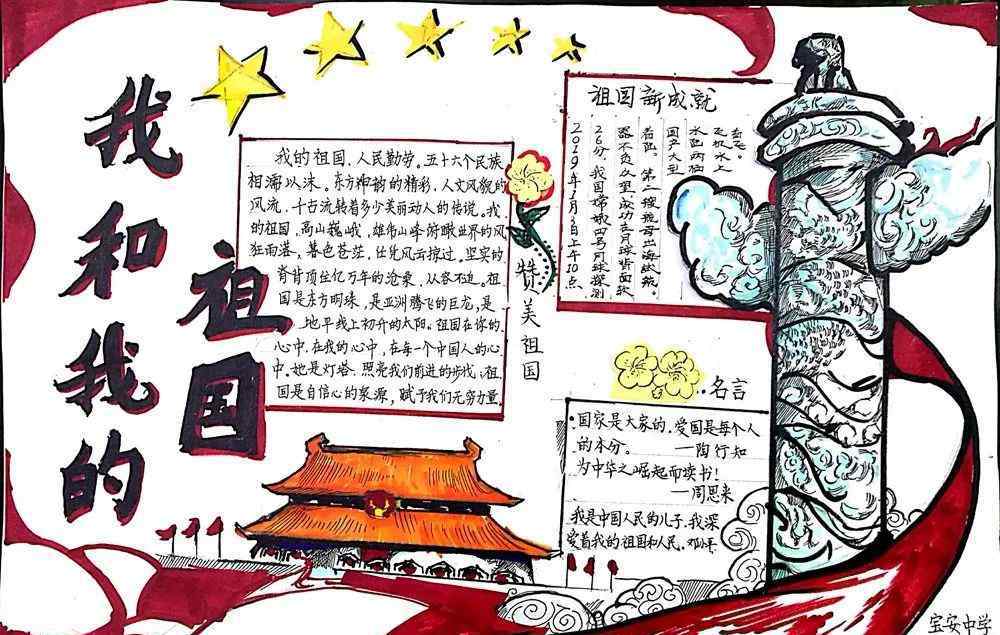 我和我的
祖国
我的祖国，人民勤劳，五十六个民族
相濡以沫。东方神韵的精彩，人文风貌的
风流，千古流转着多少美丽动人的传说。我
的祖国，高山巍峨，雄伟山峰俯瞰世界的风
狂雨落，暮色苍茫，任凭风云掠过。坚实的
脊背顶住亿万年的沧桑，从容不迫。祖
国是东方明珠，是亚洲腾飞的巨龙，是
地平线上初升的太阳。祖国在你的
心中，在我的心中，在每一个中国人的心
中。她是灯塔，照亮我们前进的步伐；祖
国是自信心的泉源，赋予我们无穷力量。
赞美祖国
祖国新成就
2019年1月3日上午10点
26分，我国嫦娥四号月球探测
器不负众望，成功在月球背面软
着陆。第二艘航母出海试航。
国产大型
水陆两栖
飞机水上
起飞。
名言
国家是大家的，爱国是每个人
的本分。——陶行知
为中华之崛起而读书！
——周恩来
我是中国人民的儿子，我深
爱着我的祖国和人民。邓小平
宝安中学